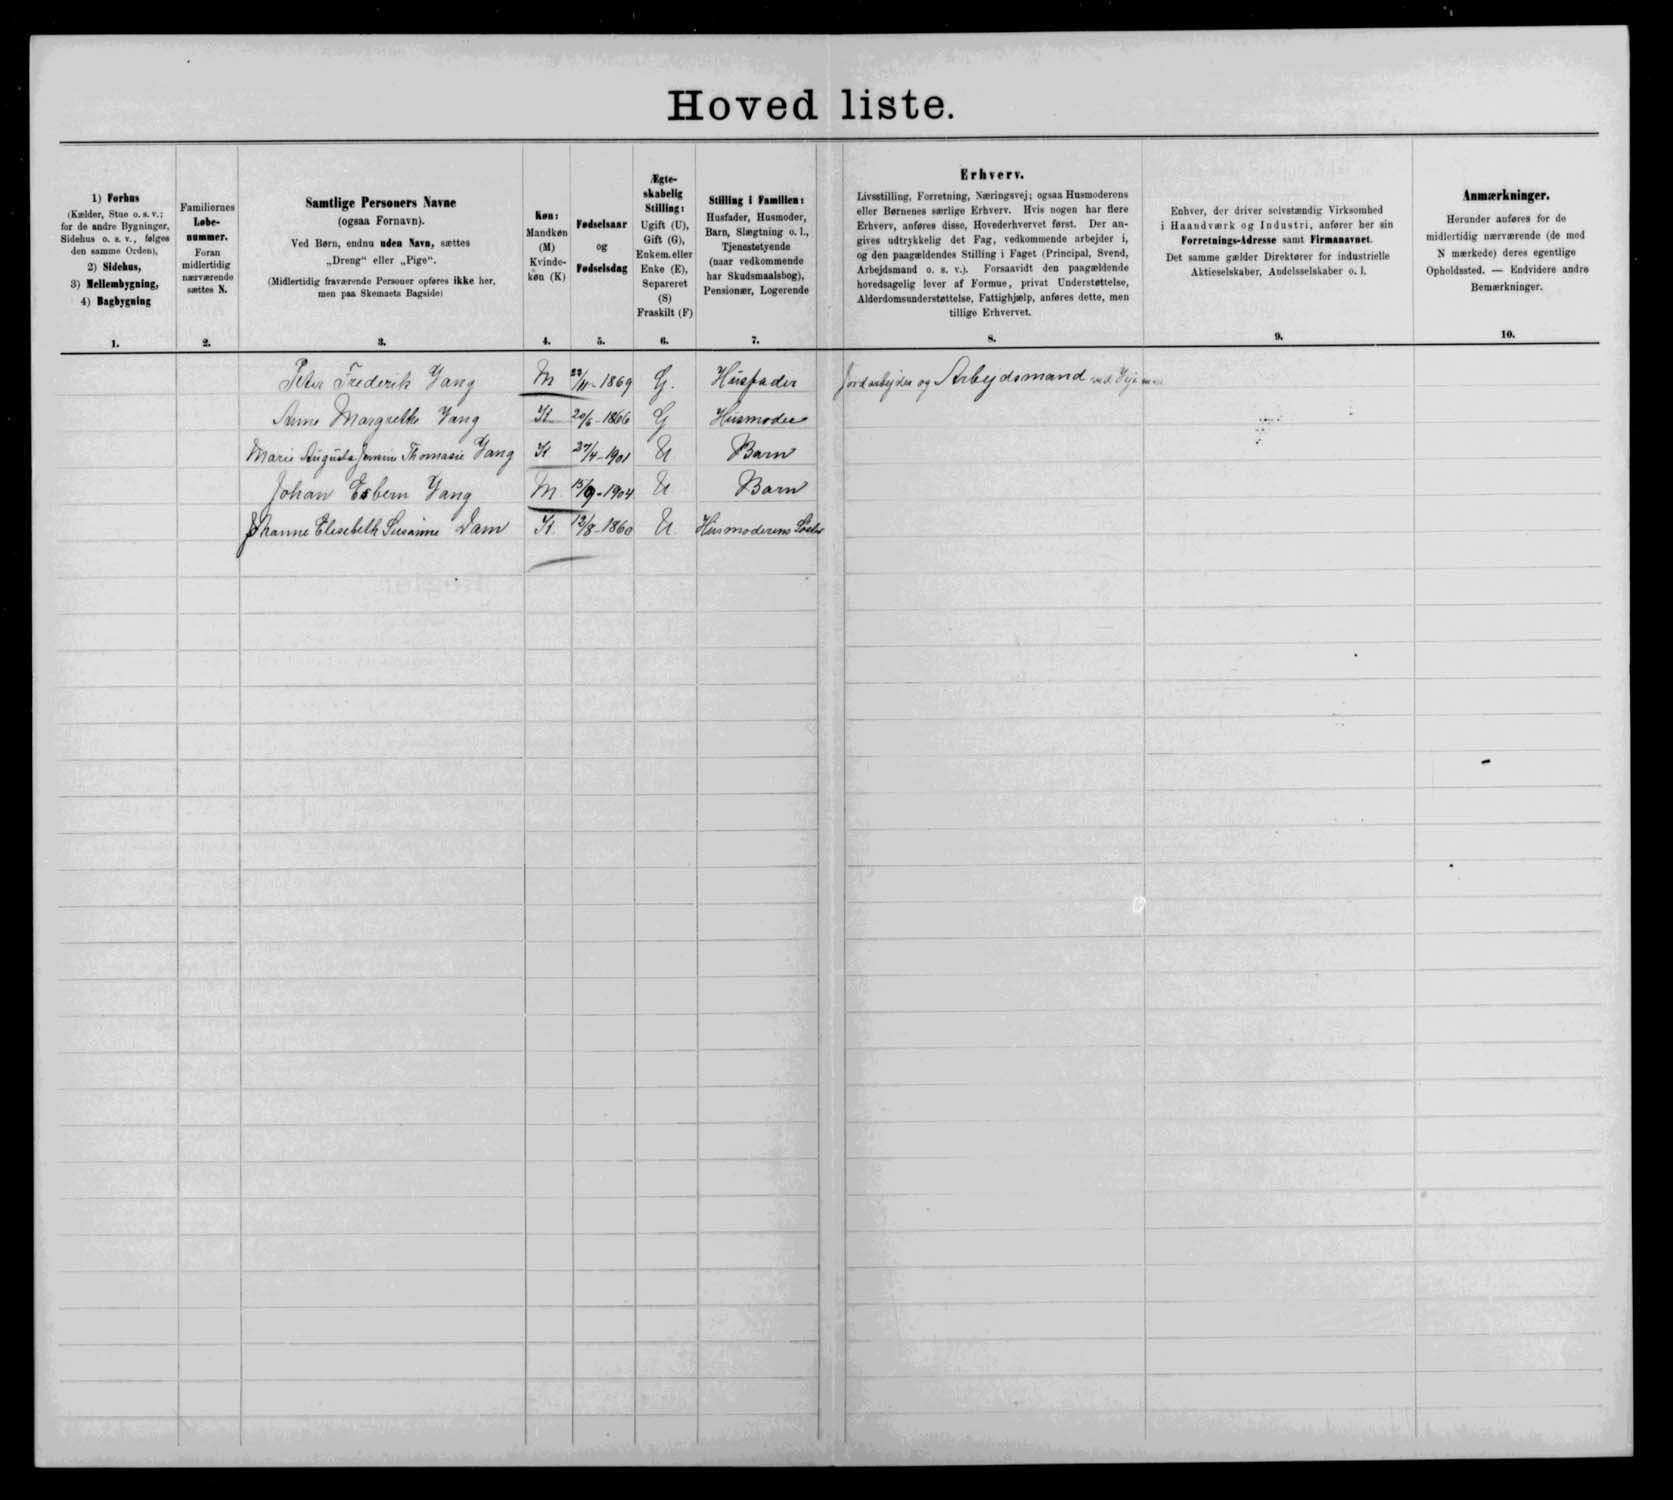 Hovedliste.
1) Forhus
(Kælder, Stue o. s. v.;
for de andre Bygninger,
Sidehus o. s. v., følges
den samme Orden),
2) Sidehus,
3) Mellembygning,
4) Bagbygning
1.
Familiernes
Løbe-
nummer.
Foran
midlertidig
nærværende
sættes N.
2.
Samtlige Personers Navne
(ogsaa Fornavn).
Ved Børn, endnu uden Navn, sættes
„Dreng" eller „Pige".
(Midlertidig fraværende Personer opføres ikke her,
men paa Skemaets Bagside)
3.
Køn:
Mandkøn
(M)
Kvinde-
køn (K)
4.
Fødselsaar
og
Fødselsdag
5.
Ægte-
skabelig
Stilling:
Ugift (U),
Gift (G),
Enkem. eller
Enke (E),
Separeret
(S)
Fraskilt (F)
6.
Stilling i Familien:
Husfader, Husmoder,
Barn, Slægtning o. l.,
Tjenestetyende
(naar vedkommende
har Skudsmaalsbog),
Pensionær, Logerende
7.
Erhverv.
Livsstilling, Forretning, Næringsvej; ogsaa Husmoderens
eller Børnenes særlige Erhverv. Hvis nogen har flere
Erhverv, anføres disse, Hovederhvervet først. Der an-
gives udtrykkelig det Fag, vedkommende arbejder i,
og den paagældendes Stilling i Faget (Principal, Svend,
Arbejdsmand o. s. v.). Forsaavidt den paagældende
hovedsagelig lever af Formue, privat Understøttelse,
Alderdomsunderstøttelse, Fattighjælp, anføres dette, men
tillige Erhvervet.
8.
Enhver, der driver selvstændig Virksomhed
i Haandværk og Industri, anfører her sin
Forretnings-Adresse samt Firmanavnet.
Det samme gælder Direktører for industrielle
Aktieselskaber, Andelsselskaber o. l.
9.
Anmærkninger.
Herunder anføres for de
midlertidig nærværende (de med
N mærkede) deres egentlige
Opholdssted. — Endvidere andre
Bemærkninger.
10.
Peter Frederik Yang M 22/11-1869 G. Husfader Jordarbejder og Arbejdsmand ved
Anne Margrethe Yang K 20/6-1866 G Husmoder
Marie Augusta Thomasie Yang K 27/4-1901 U Barn
Johan Esbern Yang M 15/9-1904 U Barn
Johanne Elisebeth Susanne Dam K 12/8-1860 U Husmoderens Søster